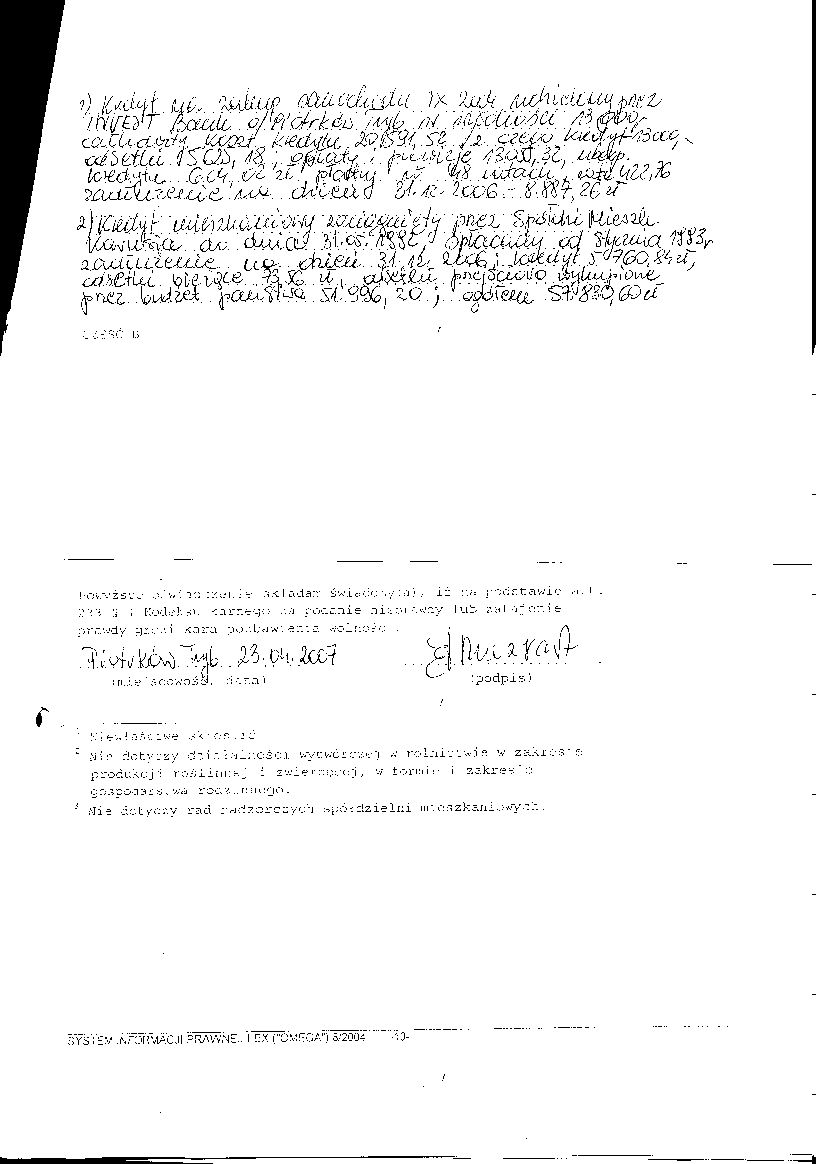 1) Kredyt na zakup samochodu IX 2004 udzielony przez
INVEST Bank o/Piotrków Tryb. w wysokości 13.000,-
całkowity koszt kredytu 20.591,52 /z czego kredyt 13000,-
odsetki 1505,18; opłaty i prowizje 1300,32, ubezp.
kredytu 604,02 zł, płatny w 48 ratach, rata 422,76
zadłużenie na dzień 31.12.2006 - 8.887,26 zł
2) Kredyt mieszkaniowy zaciągnięty przez Spółdz. Mieszk.
do dnia 31.05.1992, spłacany od stycznia 1993r
zadłużenie na dzień 31.12.2006; kredyt 5 760,84 zł,
odsetki bieżące 73,56 zł, odsetki przejściowo wykupione
przez budżet państwa 51.996,20; ogółem 57.830,60 zł
CZĘŚĆ B
Powyższe oświadczenie składam świadomy(a), iż na podstawie art.
233 § 1 Kodeksu karnego za podanie nieprawdy lub zatajenie
prawdy grozi kara pozbawienia wolności.
Piotrków Tryb. 23.04.2007
(miejscowość, data) (podpis)
1 Niewłaściwe skreślić
2 Nie dotyczy działalności wytwórczej w rolnictwie w zakresie
produkcji roślinnej i zwierzęcej, w formie i zakresie
gospodarstwa rodzinnego.
3 Nie dotyczy rad nadzorczych spółdzielni mieszkaniowych.
SYSTEM INFORMACJI PRAWNEJ LEX ("OMEGA") 8/2004 -10-